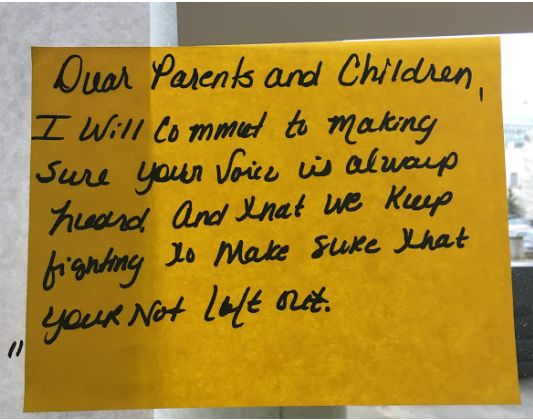 Dear Parents and Children,
I Will Commit to making
sure your Voice is always
heard. And that we Keep
fighting to Make sure that
your Not left out.
"